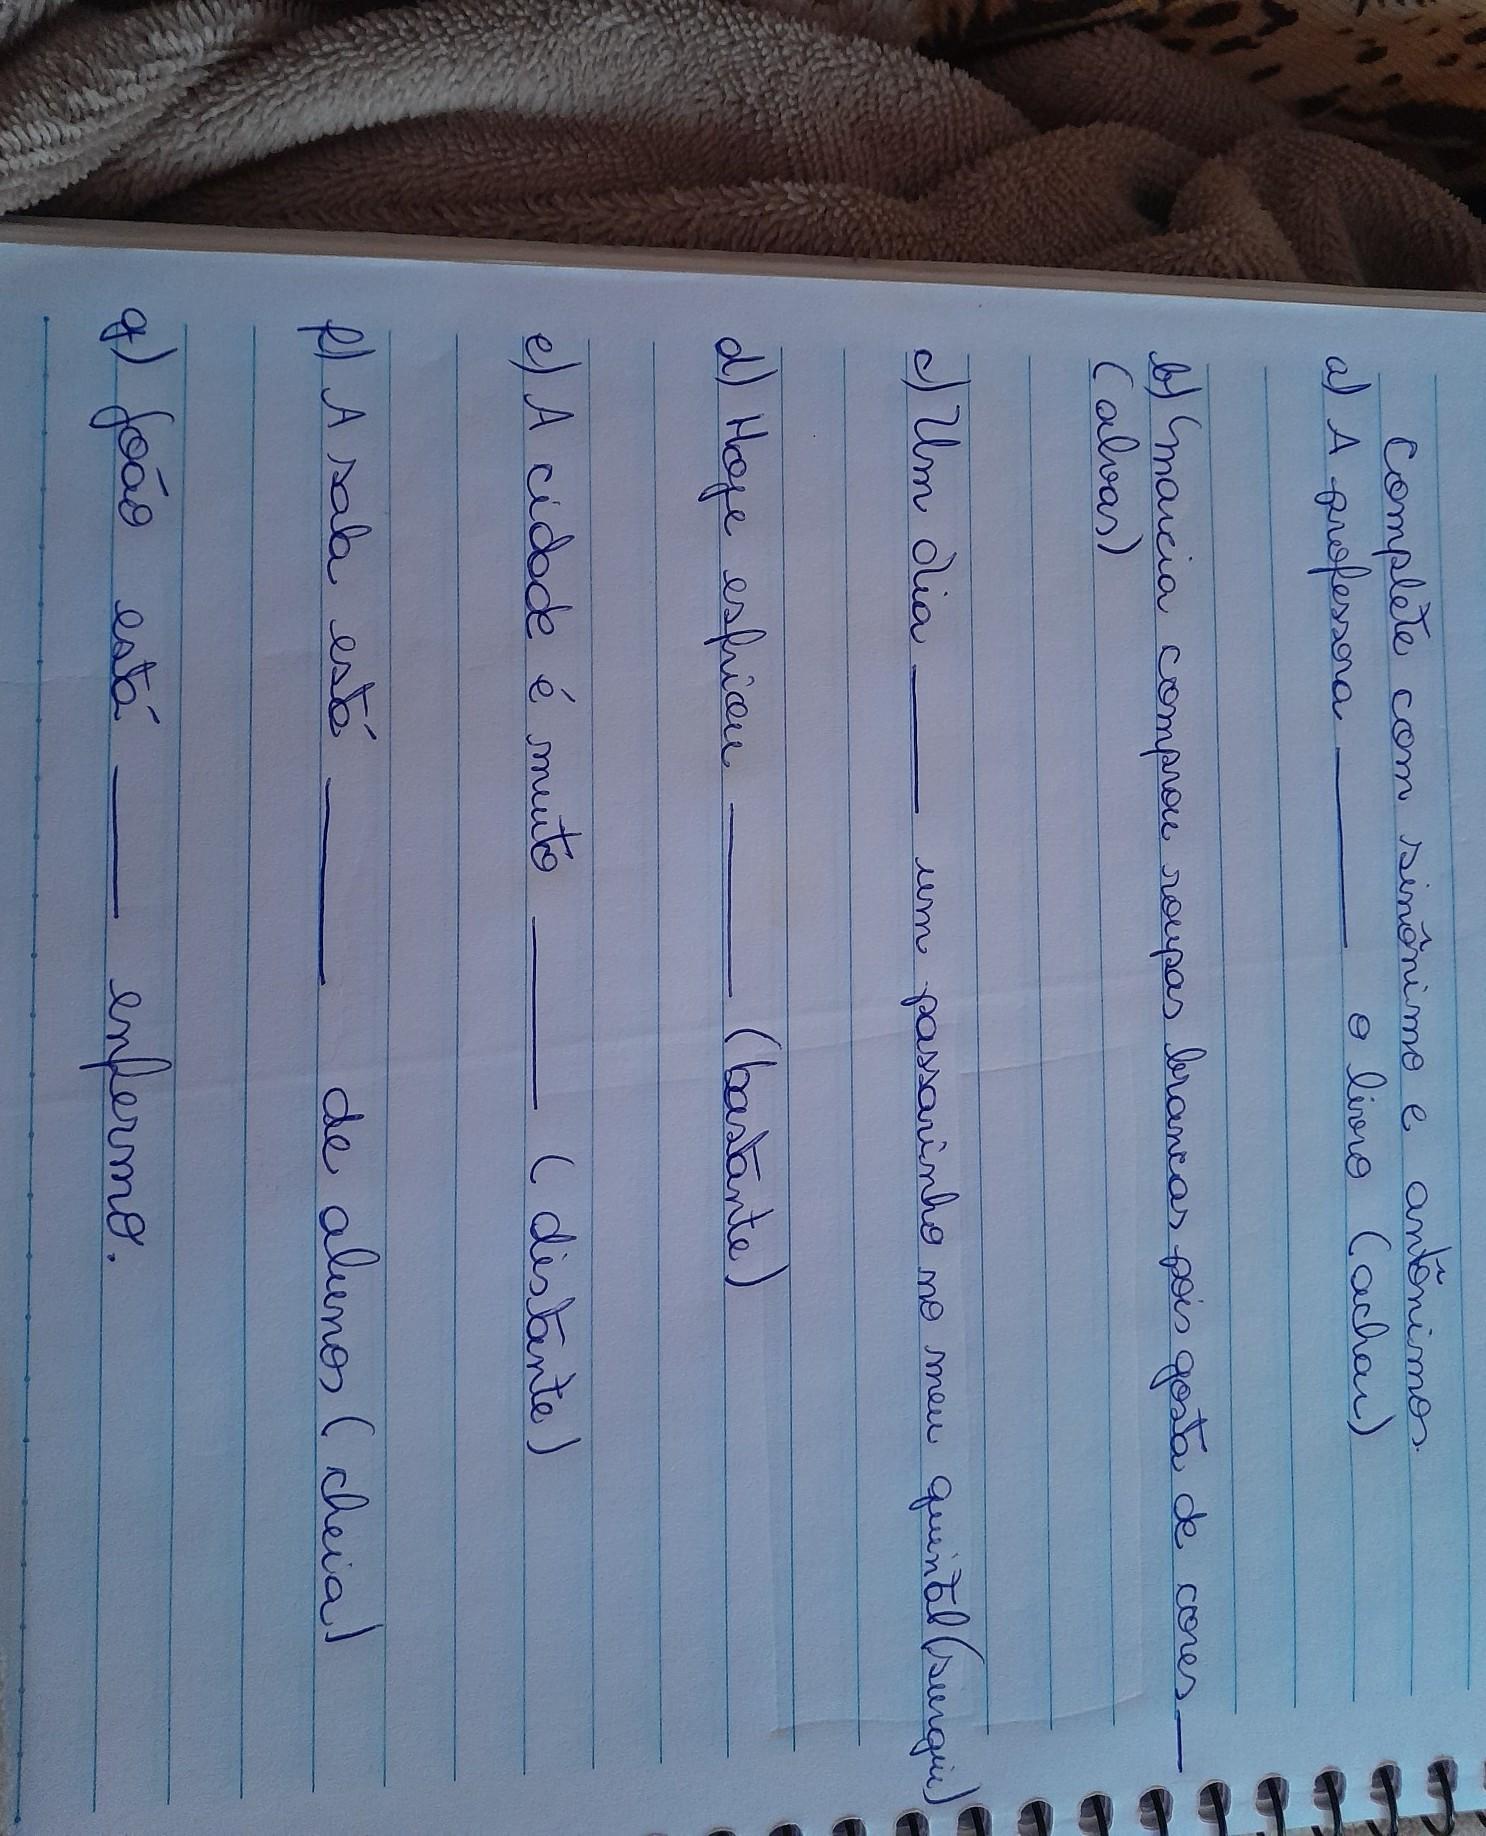 Complete com sinônimo e antônimos.
a) A professora _____ o livro (achar)
b) Marcia comprou roupas brancas pois gosta de cores ___
(alvas)
c) Um dia _____ um passarinho no meu quintal (surgir)
d) Hoje esfriou _____ (bastante)
e) A cidade é muito _____ (distante)
f) A sala está _____ de alunos (cheia)
g) João está _____ enfermo.